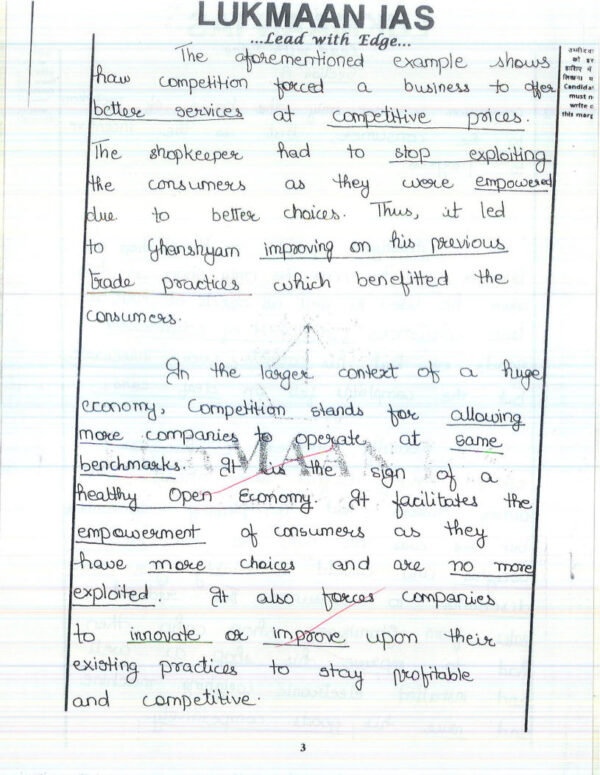 LUKMAAN IAS
...Lead with Edge...
The aforementioned example shows
how competition forced a business to offer
better services at competitive prices.
The shopkeeper had to stop exploiting
the consumers as they were empowered
due to better choices. Thus, it led
to Ghanshyam improving on his previous
trade practices which benefitted the
consumers.
In the larger context of a huge
economy, Competition stands for allowing
more companies to operate at same
benchmarks. It is the sign of a
healthy Open Economy. It facilitates the
empowerment of consumers as they
have more choices and are no more
exploited. It also forces companies
to innovate or improve upon their
existing practices to stay profitable
and competitive.
3
उम्मीदवा
को इस
हाशिए में
Candidat
must n
write o
this marg